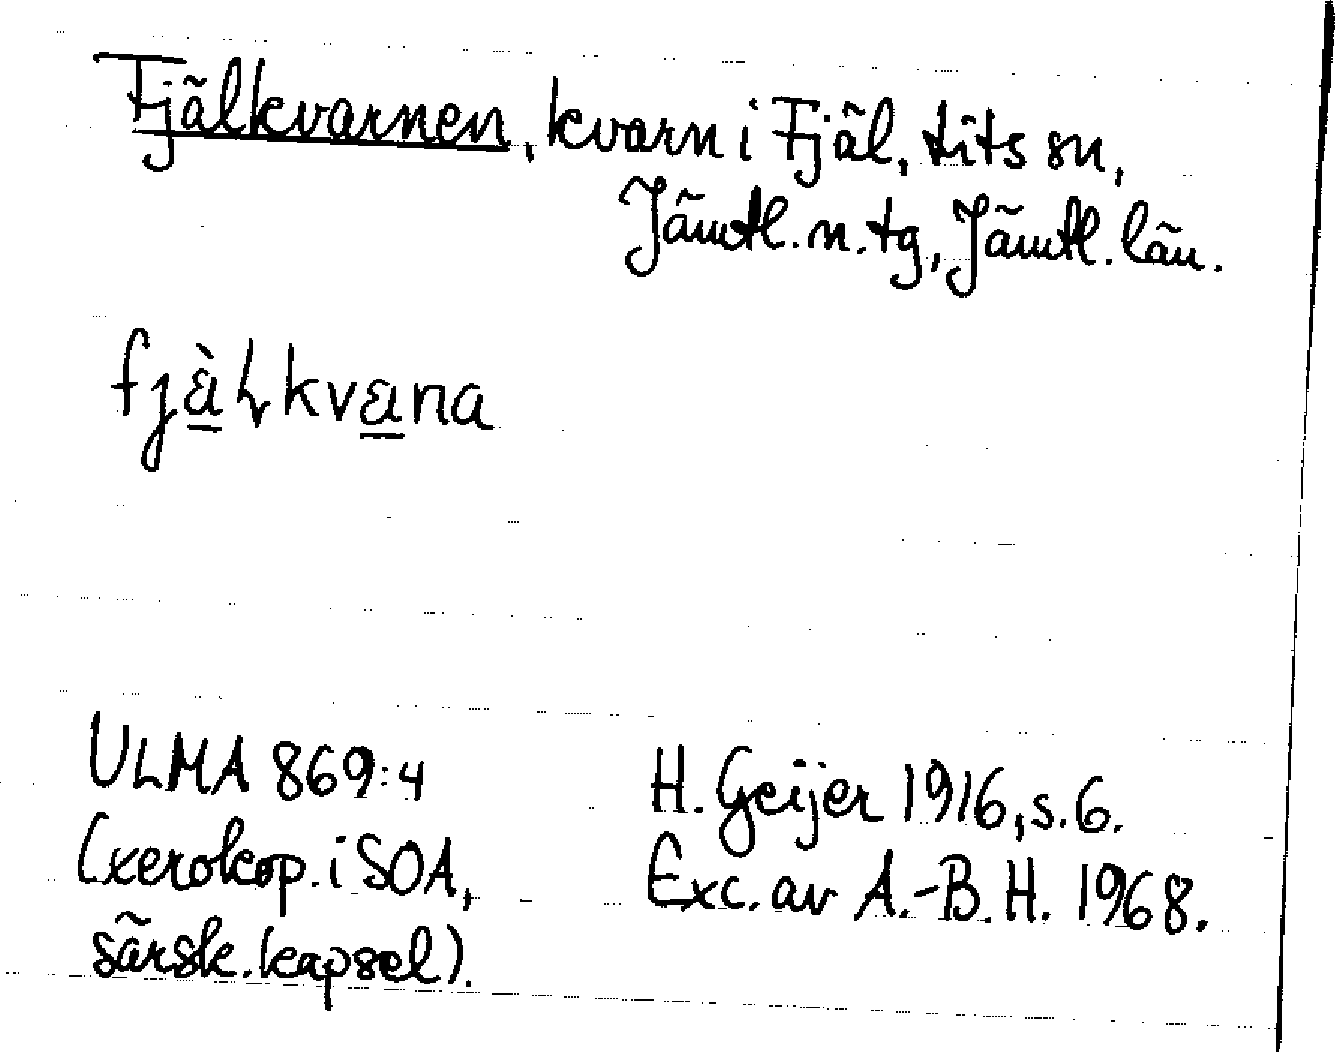 Fjälkvarnen, kvarn i Fjäl, Lits sn,
Jämtl. n. tg, Jämtl. län.
ULMA 869:4
(xerokop. i SOA,
särsk. kapsel).
H. Geijer 1916, s. 6.
Exc. av A.-B. H. 1968.